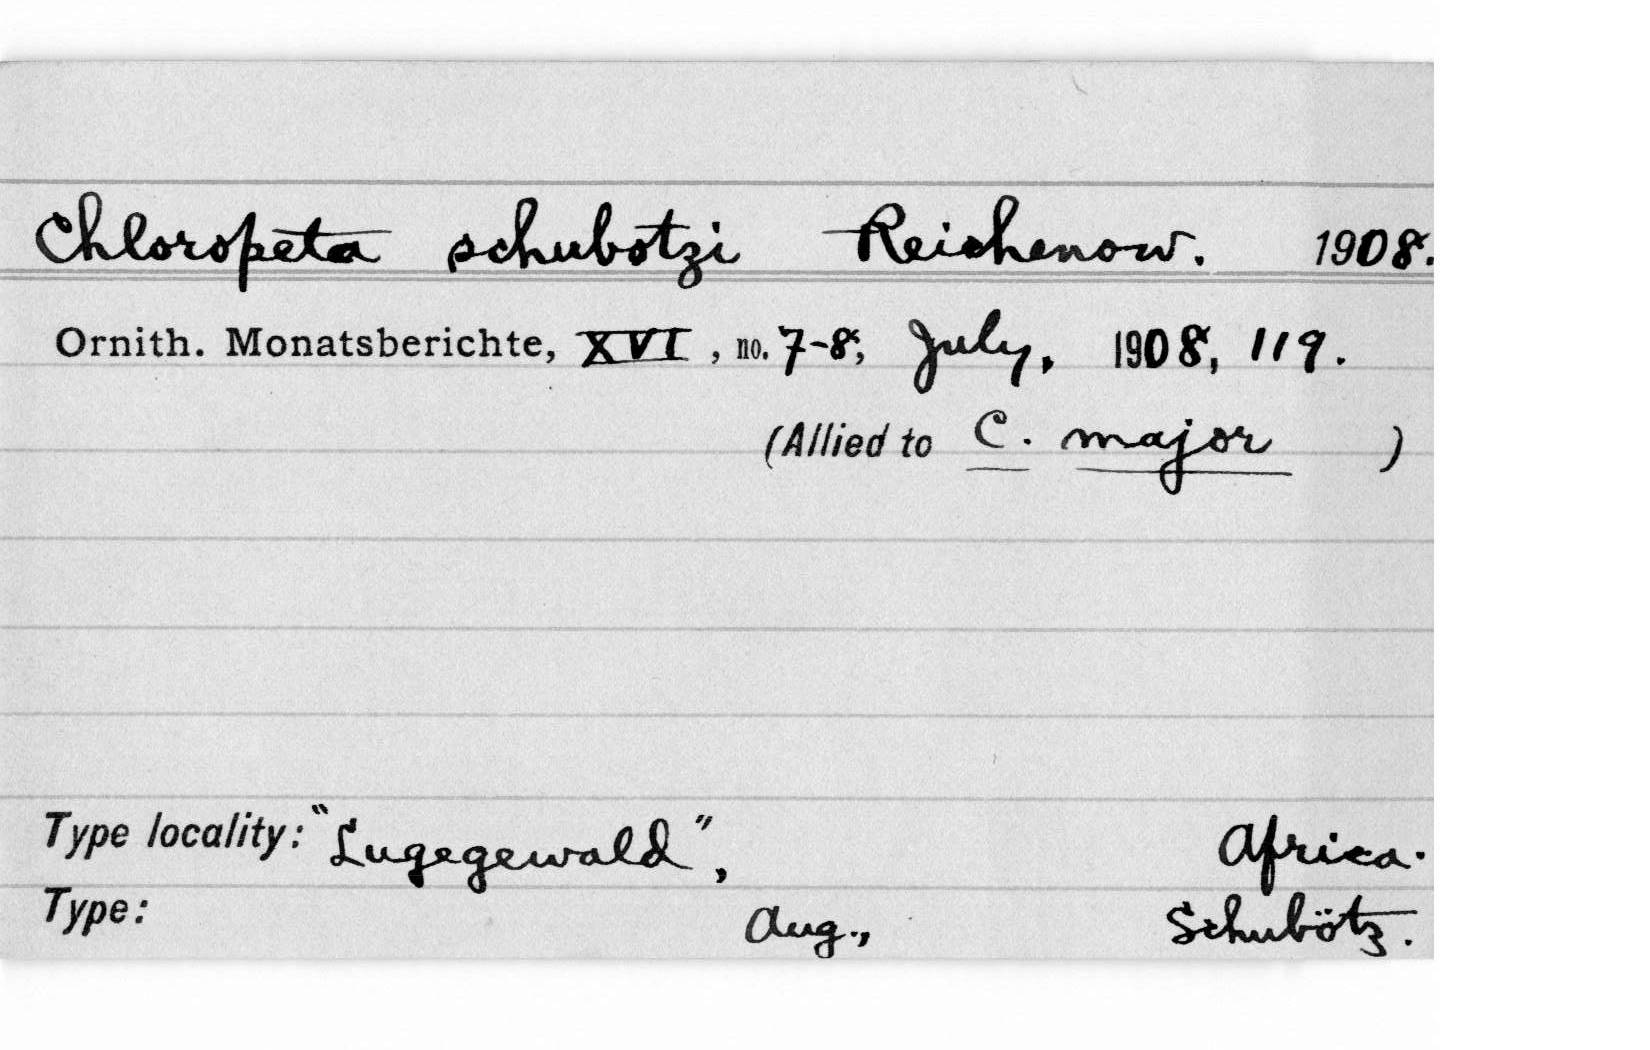 Chloropeta schubotzi Reichenow. 1908.
Ornith. Monatsberichte, XVI, no. 7-8, July, 1908, 119.
(Allied to C. major )
Type locality: "Lugegewald", Africa.
Type: Aug., Schubötz.